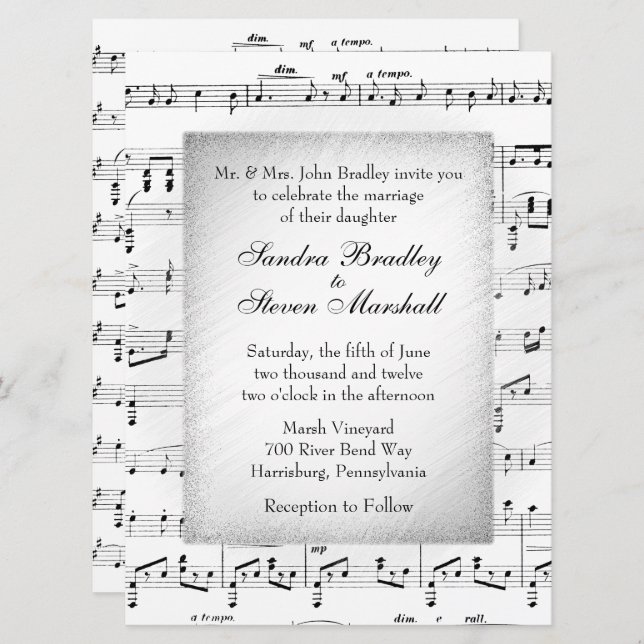 dim. mf a tempo.
dim. mf a tempo.
Mr. & Mrs. John Bradley invite you
to celebrate the marriage
of their daughter
Sandra Bradley
to
Steven Marshall
Saturday, the fifth of June
two thousand and twelve
two o'clock in the afternoon
Marsh Vineyard
700 River Bend Way
Harrisburg, Pennsylvania
Reception to Follow
mp
a tempo. dim. e rall.